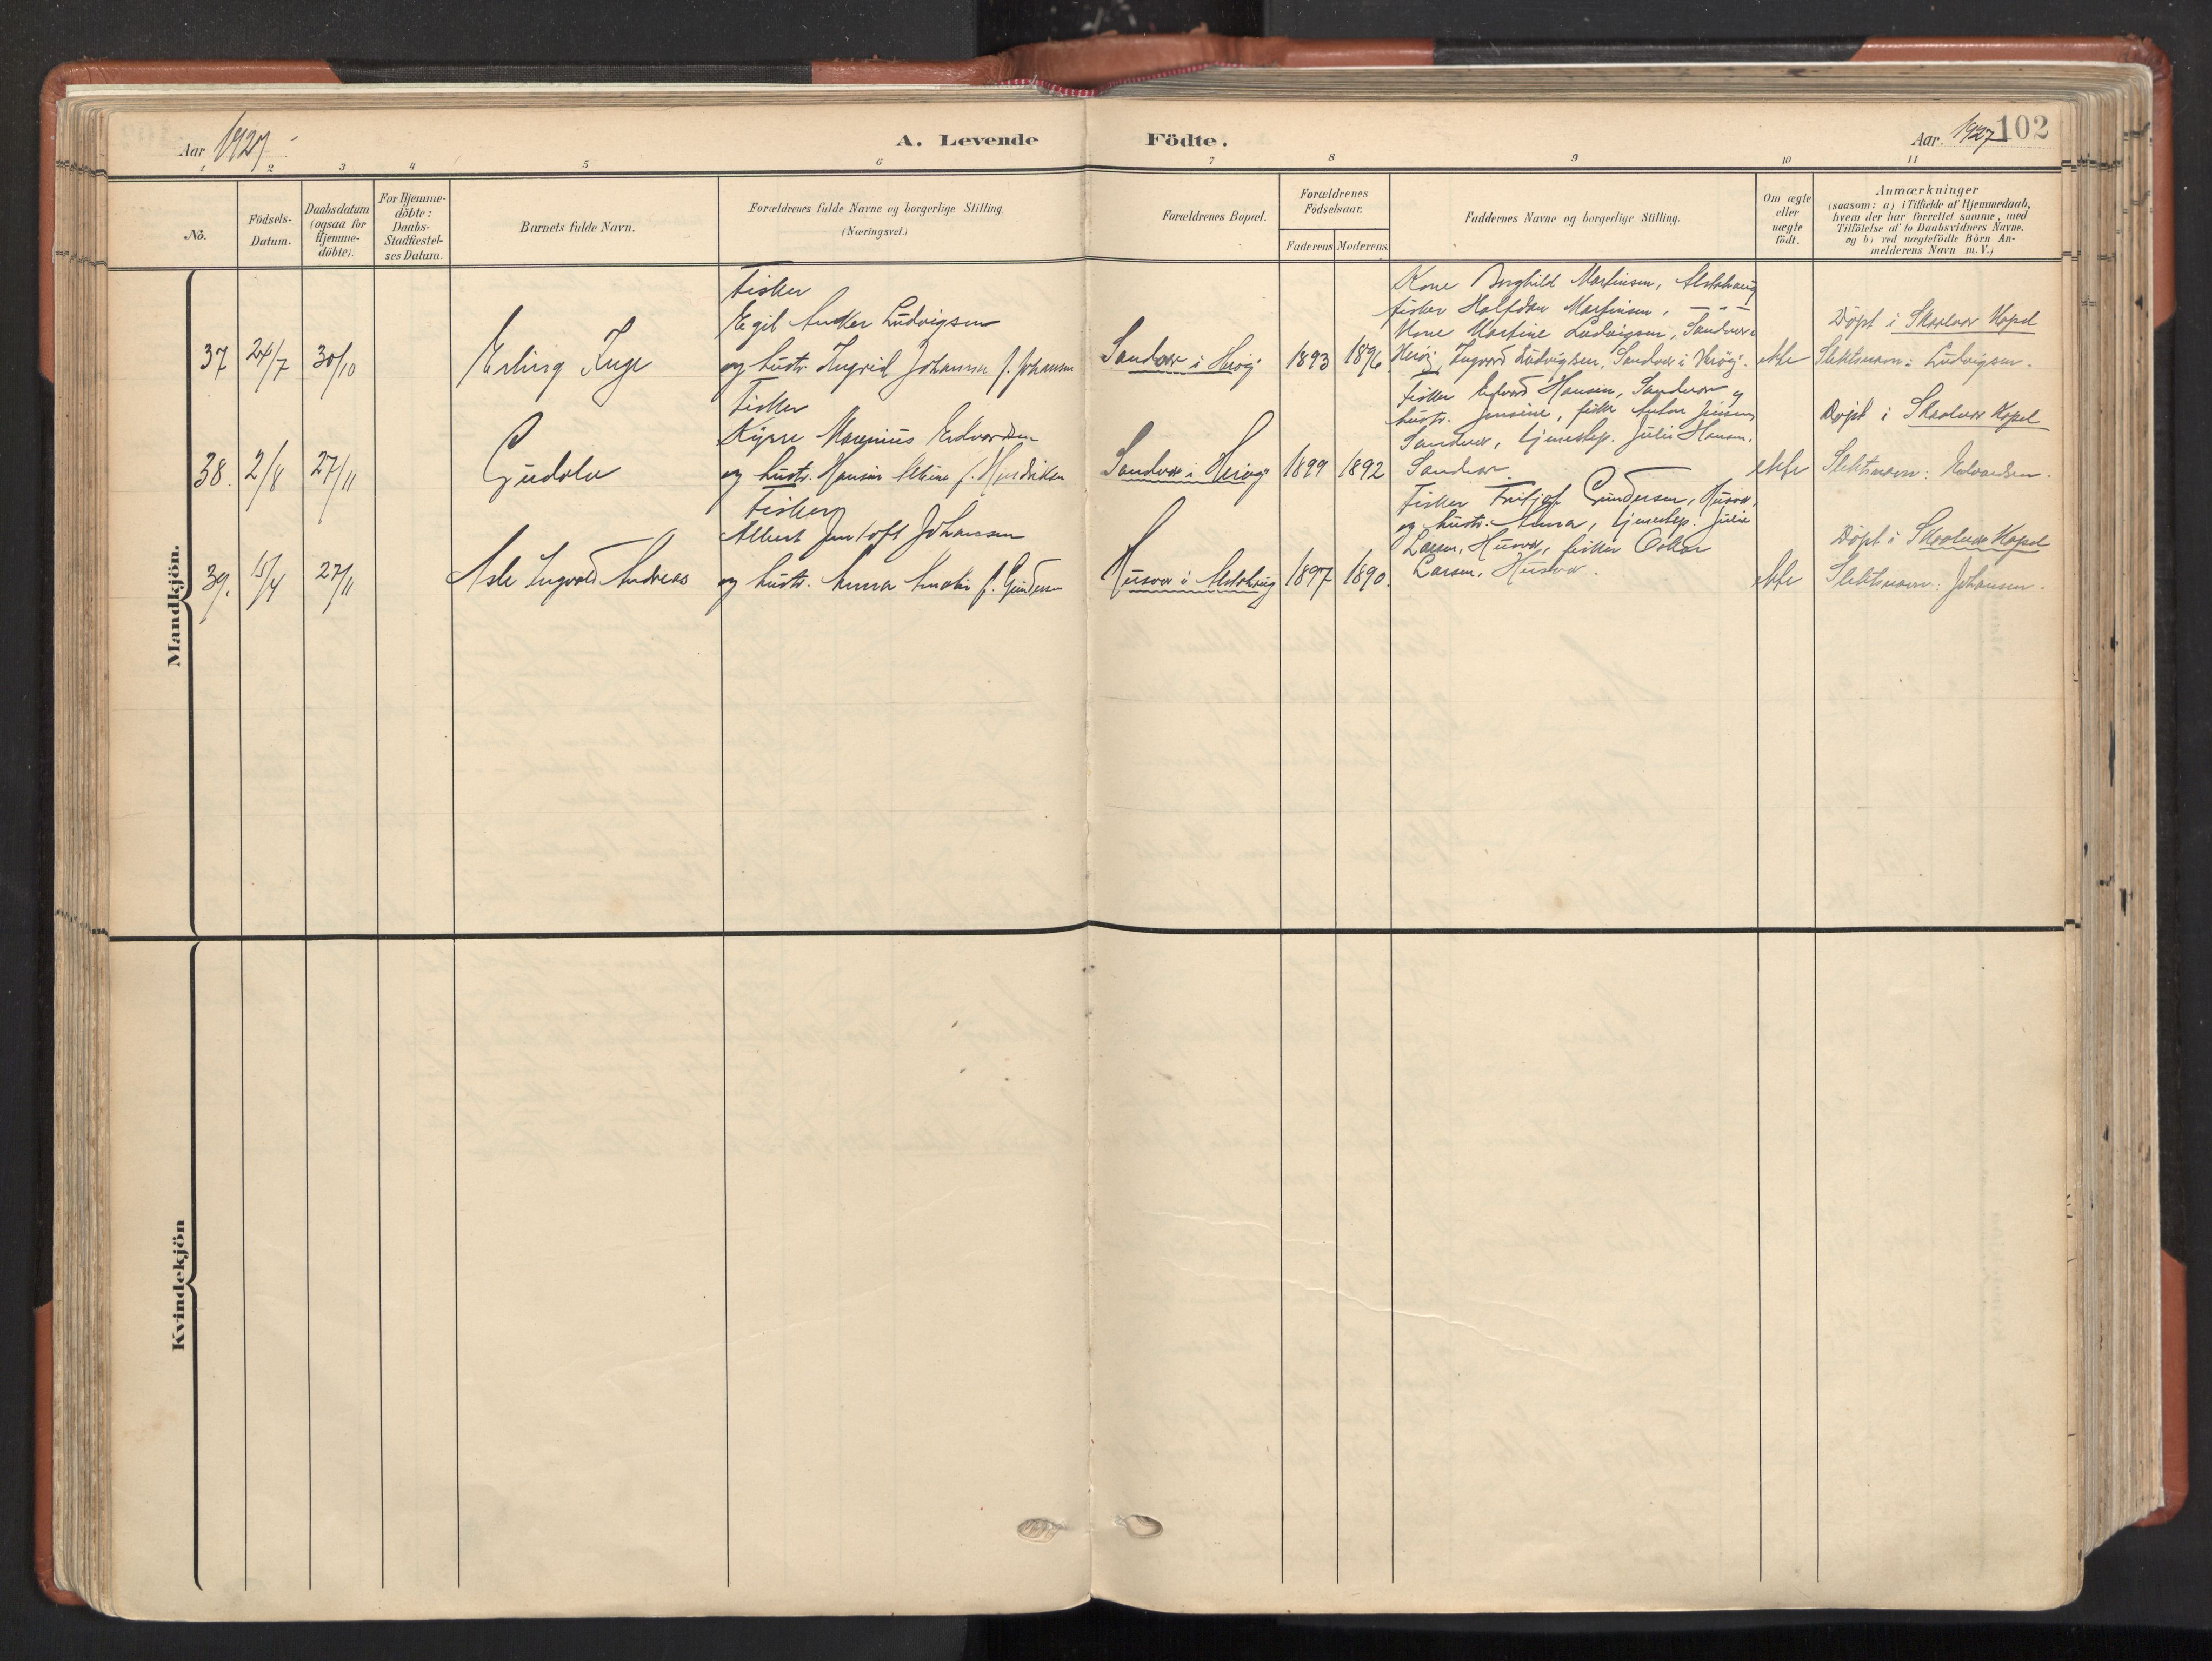 Aar 1927.
A. Levende Födte.
Aar. 1927
102
1 2 3 4 5 6 7 8 9 10 11
No.
Födsels-Datum.
Daabsdatum (ogsaa for Hjemme-döbte).
For Hjemme-döbte: Daabs-Stadfæstel-ses Datum.
Barnets fulde Navn.
Forældrenes fulde Navne og borgerlige Stilling
(Næringsvei.)
Forældrenes Bopæl.
Forældrenes Födselsaar.
Faderens
Moderens.
Faddernes Navne og borgerlige Stilling.
Om ægte eller uægte födt.
Anmærkninger
(saasom: a) i Tilfælde af Hjemmedaab,
hvem der har forrettet samme, med
Tilföielse af to Daabsvidners Navne.
og b) ved uægtefödte Börn An-
melderens Navn m.V.)
Mandkjön.
37 24/7 30/10 Erling Inge
Fisker
Egil Anker Ludvigsen
og hustr. Ingrid Johanna f. Johansen
Sandvær i Herøy 1893 1896
Kone Borghild Martinsen, Alstahaug
fisker Halfdan Martinsen, — " —
Kone Martine Ludvigsen, Sandvær i
Herøy, Ingvard Ludvigsen, Sandvær i Herøy.
ekte
Döpt i Skaalvær Kapel
Slektsnavn: Ludvigsen.
38. 2/8 27/11 Gudolv
Fisker
Kyrre Marenius Edvardsen
og hustr. Hansine f. Hendriksen
Sandvær i Herøy 1899 1892
Fisker Edvard Hansen, Sandvær og
hustr. Jensine, fisker Anton Jensen
Sandvær, tjenestep. Julie Hansen,
Sandvær
ekte
Döpt i Skaalvær Kapel
Slektsnavn: Edvardsen.
39. 15/4 27/11 Asle Ingvald Andreas
Fisker
Albert Jentoft Johansen
og hustr. Anna Amalie f. Gundersen
Husvær i Alstahaug 1897 1890.
Fisker Fritjof Gundersen, Husvær,
og hustr. Anna, tjenestep. Julie
Larsen, Husvær, fisker Oskar
Larsen, Husvær.
ekte
Döpt i Skaalvær Kapel
Slektsnavn: Johansen.
Kvindekjön